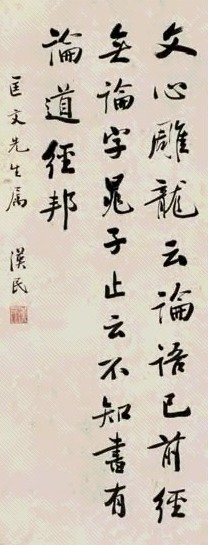 文心雕龍云論語已前經
無論字晁子止云不知書有
論道經邦
匡文先生属
漢民